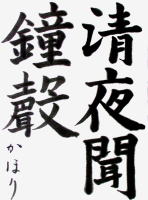 清夜聞
鐘聲
かほり